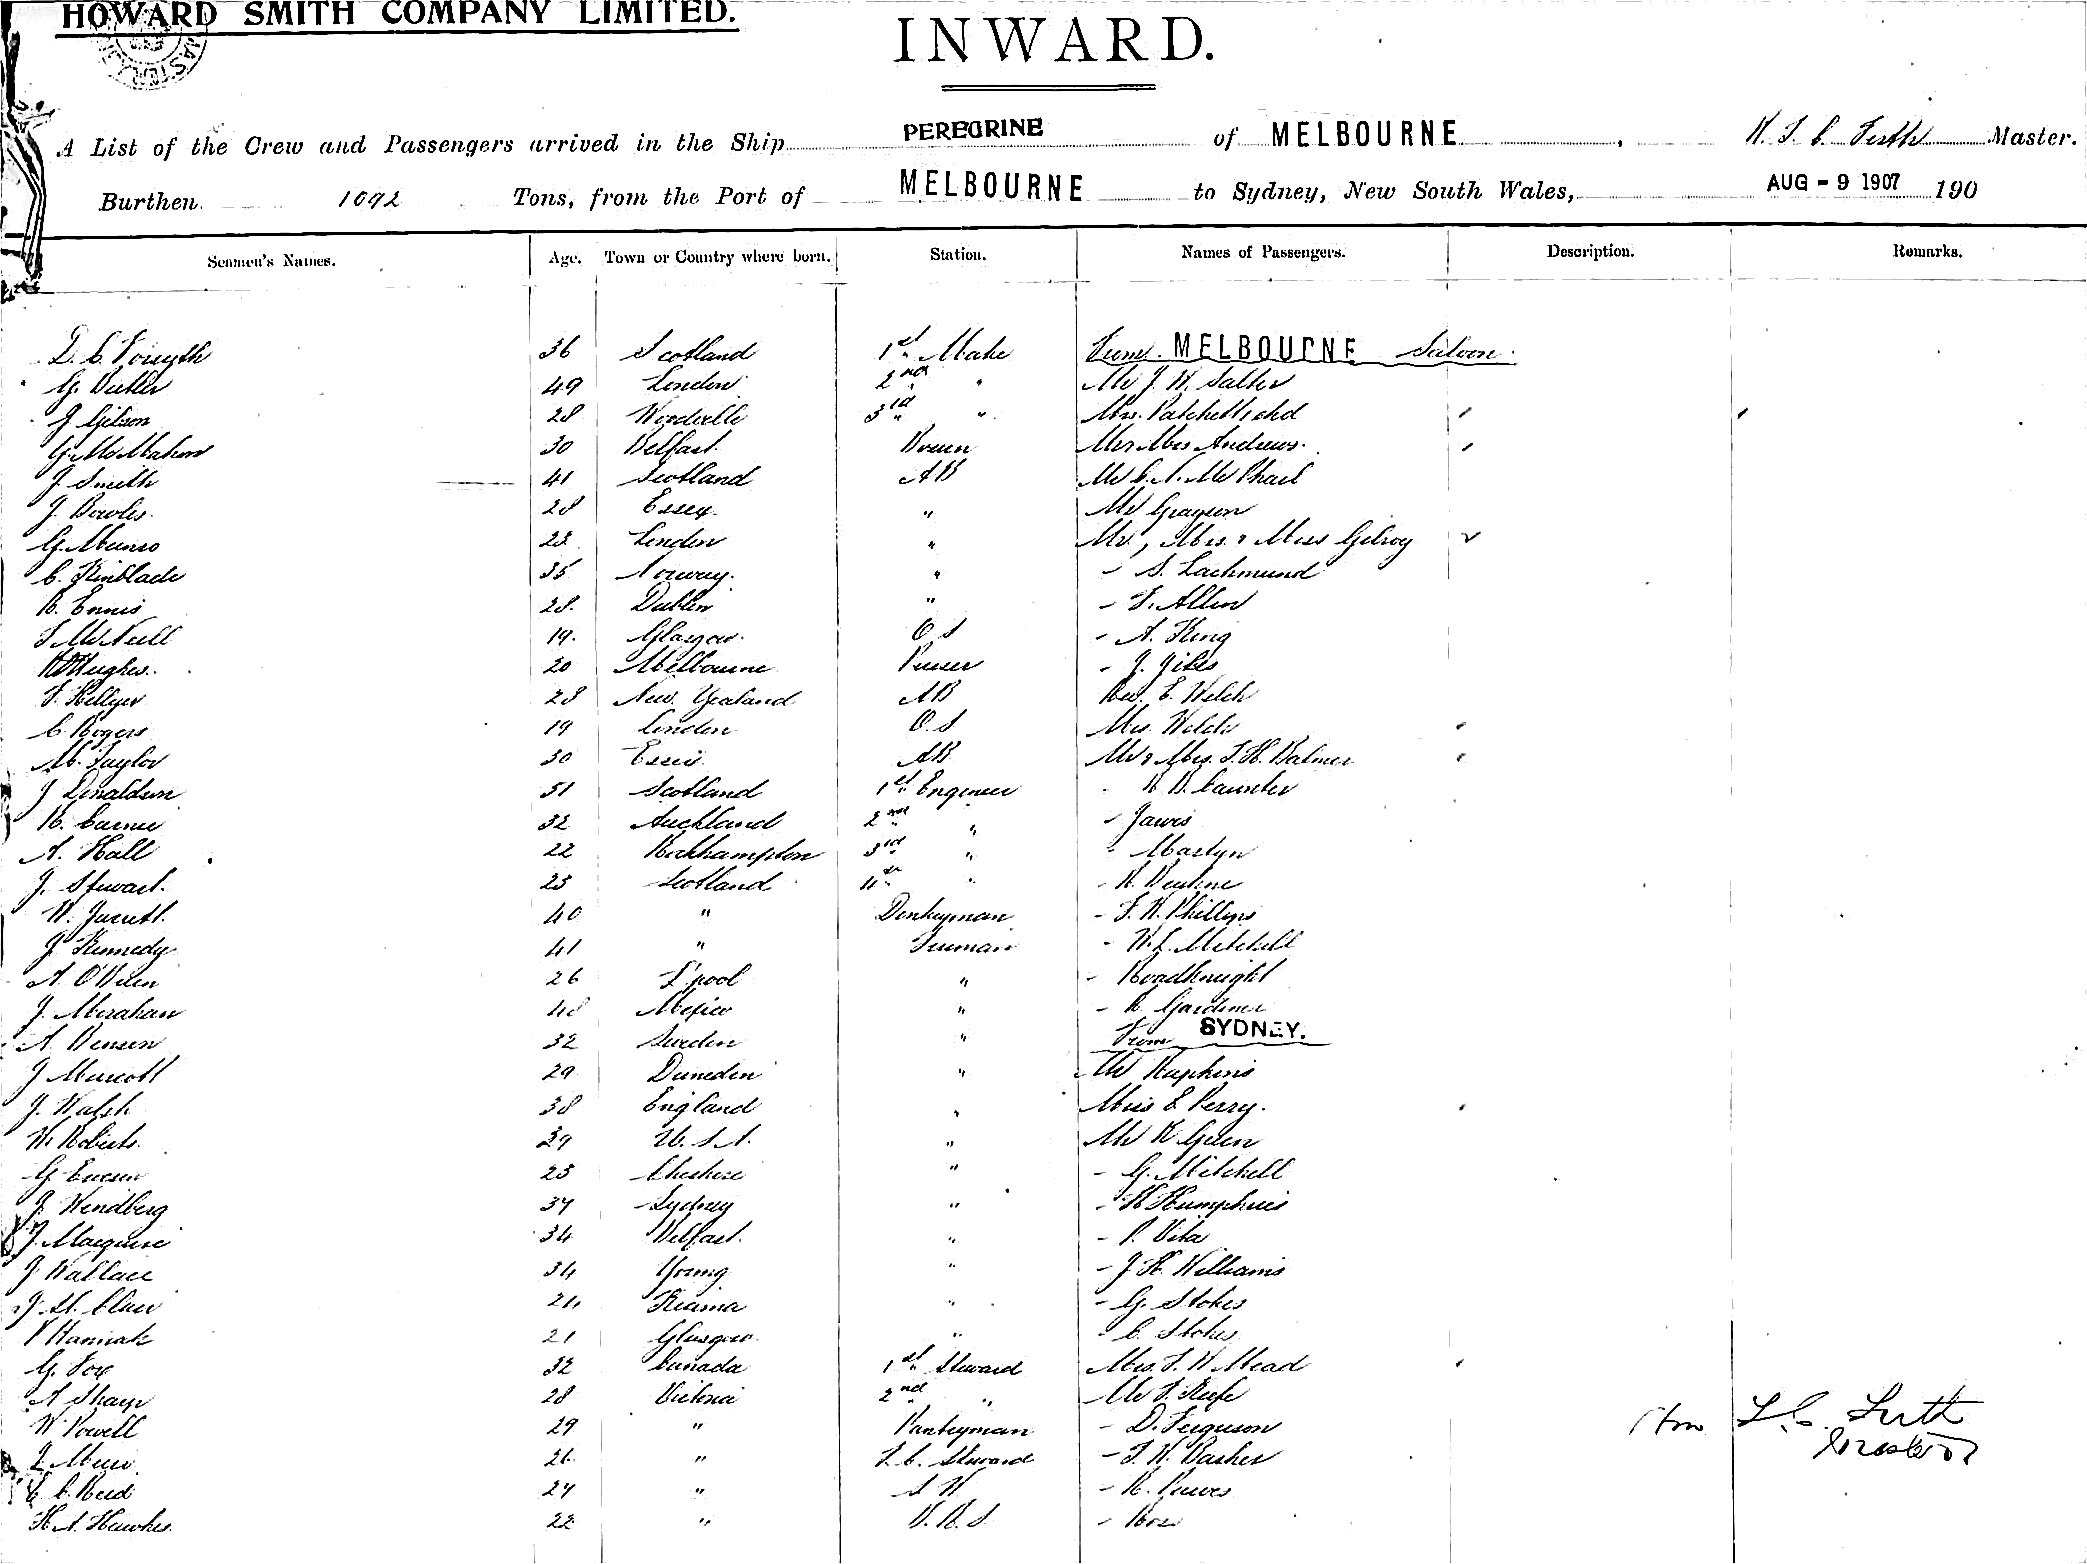 HOWARD SMITH COMPANY LIMITED.
INWARD.
A List of the Crew and Passengers arrived in the Ship PEREGRINE of MELBOURNE, Master.
Burthen 1092 Tons, from the Port of MELBOURNE to Sydney, New South Wales, AUG - 9 1907 190
Seamen's Names. Age. Town or Country where born. Station. Names of Passengers. Description. Remarks.
D. C. Forsyth 36 Scotland 1st Mate From MELBOURNE Saloon
G. Butler 49 London 2nd " Mr J. W. Salter
J Gibson 28 Woodville 3rd " Mrs. Patchett & chd
G. McMahon 30 Belfast Bosun Mr & Mrs Andrews.
J. Smith 41 Scotland AB Mr C. A. McPhail
J. Bowles. 28 Essex. " Mr Grayson
G. Munro 23 London " Mr, Mrs. & Miss Gilroy
C. Kinblade 35 Norway. " - S. Lachmund
R. Ennis 28. Dublin " - F. Allen
McNeill 19. Glasgow. O S - A. King
Hughes. 20 Melbourne Purser - J. Jiles
F. Hellyer 28 New Zealand AB Rev. E. Welch
C. Rogers 19 London O.S Mrs. Welch
M. Taylor 30 Essex AB Mr & Mrs. F. H. Balmer
J Donaldson 51 Scotland 1st Engineer Caunter
R. Currie 32 Auckland 2nd " - Jarvis
A. Hall 22 Rockhampton 3rd " - Martyn
J. Stewart. 23 Scotland 4th "
W. Jarrett. 40 " Donkeyman - F. W. Phillips
J Kennedy 41 " Fireman - W. L. Mitchell
A. O'Brien 26 L'pool " - Roadknight
J. Mirahan 48 Mexico " - R. Gardiner
A. Benson 32 Sweden " From SYDNEY.
J Murcott 29 Dunedin " Mr Hopkins
J. Walsh 38 England " Miss E Perry.
W. Roberts. 29 U. S. A. " Mr H Green
G 23 Cheshire " - G. Mitchell
J. Wendberg 37 Sydney " - H Humphries
J. Macquire 34 Belfast. " - P. Vita
J Wallace 34 Young " - J H. Williams
J. St. Clair 24 Kiama " - G. Stokes
P Hannah 21 Glasgow. " - C. Stokes
G. Fox 32 Canada 1st Steward Mrs. F. W Mead
A Sharp 28 Victoria 2nd " Mr J. Keefe
W. Powell 29 " Pantryman - D. Ferguson
Muir 26 " F. C. Steward - F. W. Basher
C. Reed 24 " S W
H. A. Hawkes. 22 " - Rose